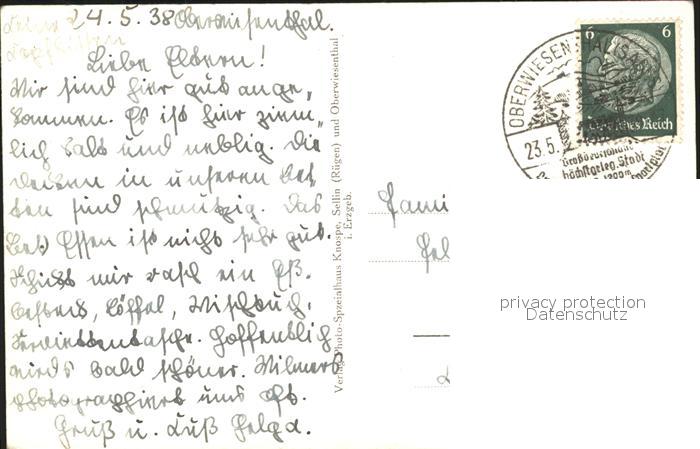 24. 5. 38 Oberwiesenthal.
Liebe Eltern!
Wir sind hier gut ange-
kommen. Es ist hier ziem-
lich kalt und neblig. Die
Decken in unseren Bet-
ten sind schmutzig. Das
Essen ist nicht sehr gut.
Schickt mir rasch ein Eß-
besteck, Löffel, Wischtuch,
Serviettentasche. Hoffentlich
wirds bald schöner. Wilmers
photographiert uns oft.
Gruß u. Kuß Helga.
Verlag Photo-Spezialhaus Knospe, Sellin (Rügen) und Oberwiesenthal
i. Erzgeb.
6 6
Deutsches Reich
OBERWIESENTHAL
23.5.
Großdeutschlands
höchstgeleg. Stadt
Fami
privacy protection
Datenschutz